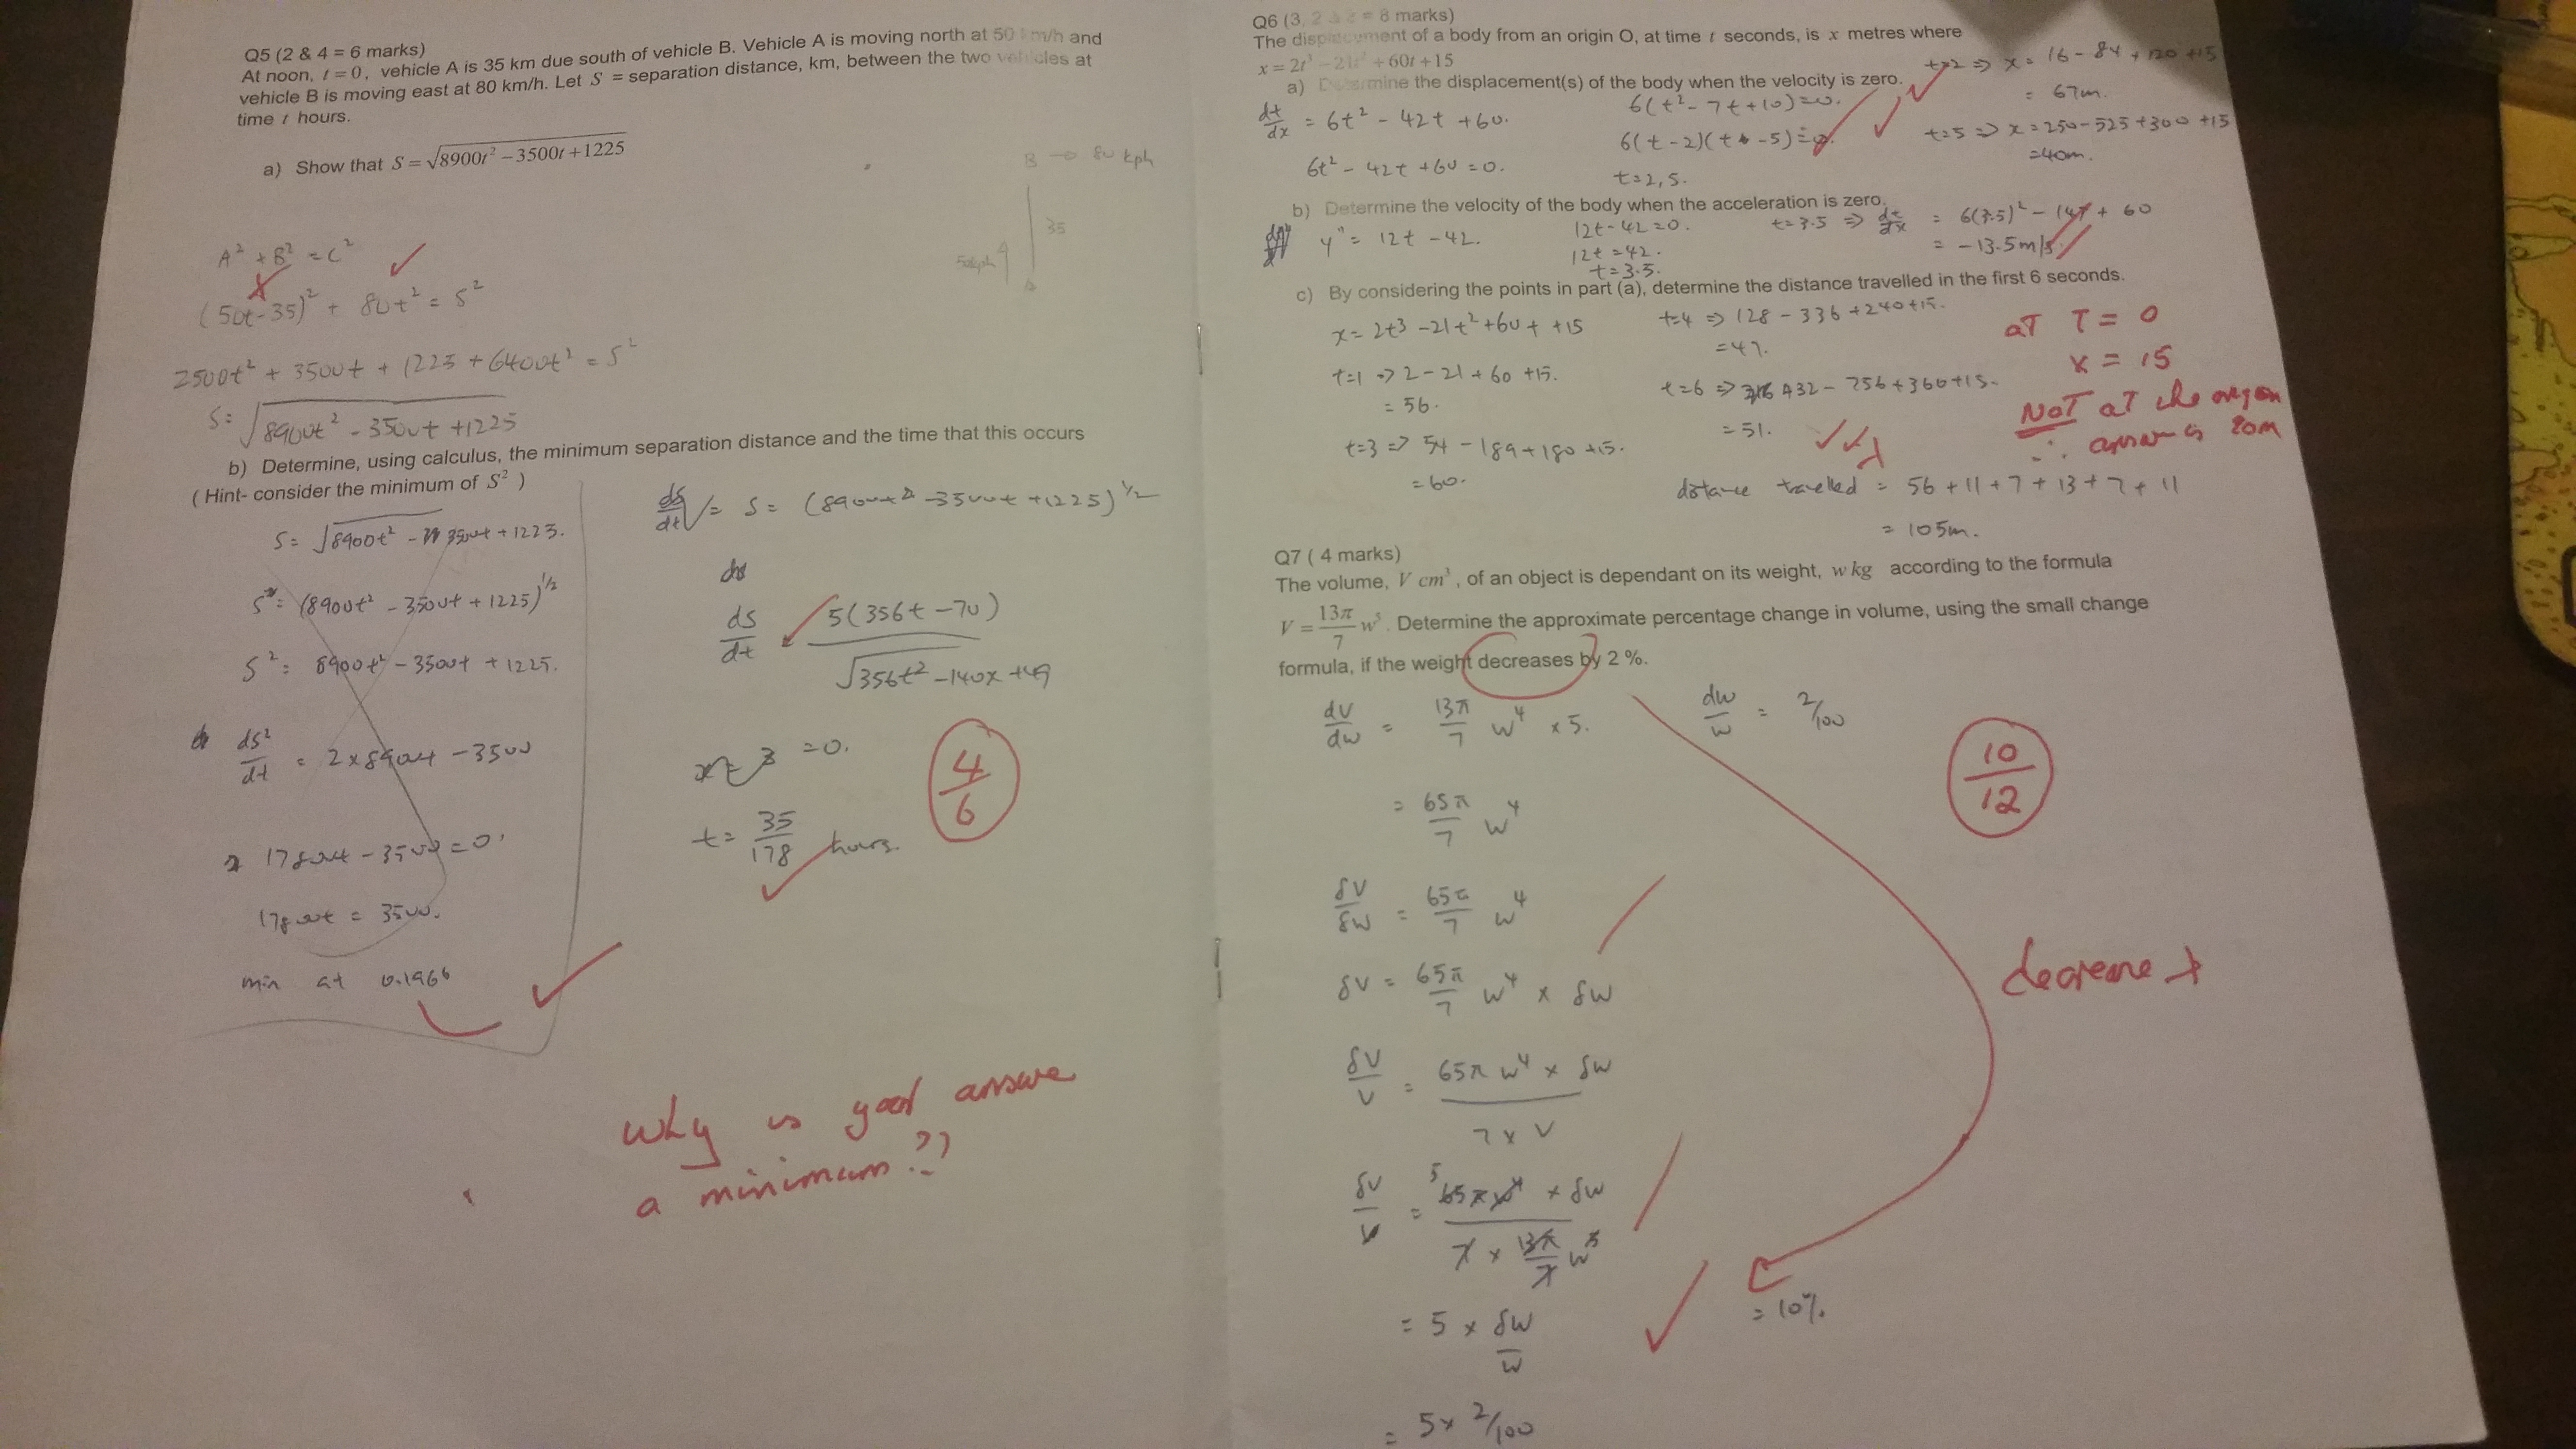 Q5 (2 & 4 = 6 marks)
At noon, t = 0, vehicle A is 35 km due south of vehicle B. Vehicle A is moving north at 50 km/h and
vehicle B is moving east at 80 km/h. Let S = separation distance, km, between the two vehicles at
time t hours.
a) Show that S = √8900t² − 3500t + 1225
B → 80 kph
35
50kph
A
A² + B² = C²
(50t-35)² + 80t² = S²
2500t² + 3500t + 1225 + 6400t² = S²
S = √8900t² - 3500t + 1225
b) Determine, using calculus, the minimum separation distance and the time that this occurs
( Hint- consider the minimum of S² )
S = √8900t² - 3500t + 1225.
S = (8900t² - 3500t + 1225)^1/2
S² = 8900t² - 3500t + 1225.
ds²/dt = 2 x 8900t - 3500
17800t - 3500 = 0
17800t = 3500.
min at 0.1966
ds/dt = S = (8900t² - 3500t + 1225)^1/2
ds/dt 5(356t - 70) / √356t² - 140x + 49
= 0.
t = 35/178 hours.
4/6
Why is your answer
a minimum??
Q6 (3, 2 & 3 = 8 marks)
The displacement of a body from an origin O, at time t seconds, is x metres where
x = 2t³ − 21t² + 60t + 15
a) Determine the displacement(s) of the body when the velocity is zero.
dt/dx = 6t² - 42t + 60.
6t² - 42t + 60 = 0.
6(t² - 7t + 10) = 0.
6(t - 2)(t - 5) = 0.
t = 2, 5.
t=2 ⇒ x = 16 - 84 + 120 + 15
= 67m.
t=5 ⇒ x = 250 - 525 + 300 + 15
= 40m.
b) Determine the velocity of the body when the acceleration is zero.
y'' = 12t - 42.
12t - 42 = 0.
12t = 42.
t = 3.5.
t = 3.5 ⇒ dt/dx = 6(3.5)² - 147 + 60
= -13.5m/s
c) By considering the points in part (a), determine the distance travelled in the first 6 seconds.
x = 2t3 - 21t² + 60t + 15
t=1 ⇒ 2 - 21 + 60 + 15.
= 56.
t=3 ⇒ 54 - 189 + 180 + 15.
= 60.
t=4 ⇒ 128 - 336 + 240 + 15.
= 47.
t=6 ⇒ 432 - 756 + 360 + 15.
= 51.
aT T = 0
x = 15
NOT aT the origin
∴ answer is 80m
distance travelled = 56 + 11 + 7 + 13 + 7 + 11
= 105m.
Q7 ( 4 marks)
The volume, V cm³, of an object is dependant on its weight, w kg according to the formula
V = 13π/7 w⁵. Determine the approximate percentage change in volume, using the small change
formula, if the weight decreases by 2 %.
dV/dw = 13π/7 w⁴ x 5.
dw/w = 2/100
= 65π/7 w⁴
10/12
δV/δw = 65π/7 w⁴
δV = 65π/7 w⁴ x δw
decrease
δV/V = 65π w⁴ x δw / 7 x V
δV/V = 5 65π w⁴ x δw / 7 x 13π/7 w⁵
= 5 x δw/w
= 10%.
= 5 x 2/100